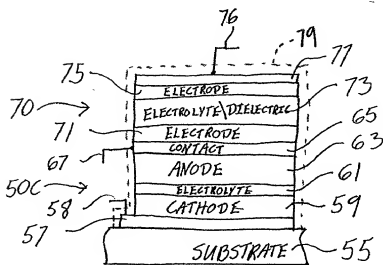 76
79
77
75
ELECTRODE
70
ELECTROLYTE\DIELECTRIC
73
71
ELECTRODE
65
67
CONTACT
63
ANODE
50C
ELECTROLYTE
61
58
CATHODE
59
57
SUBSTRATE
55